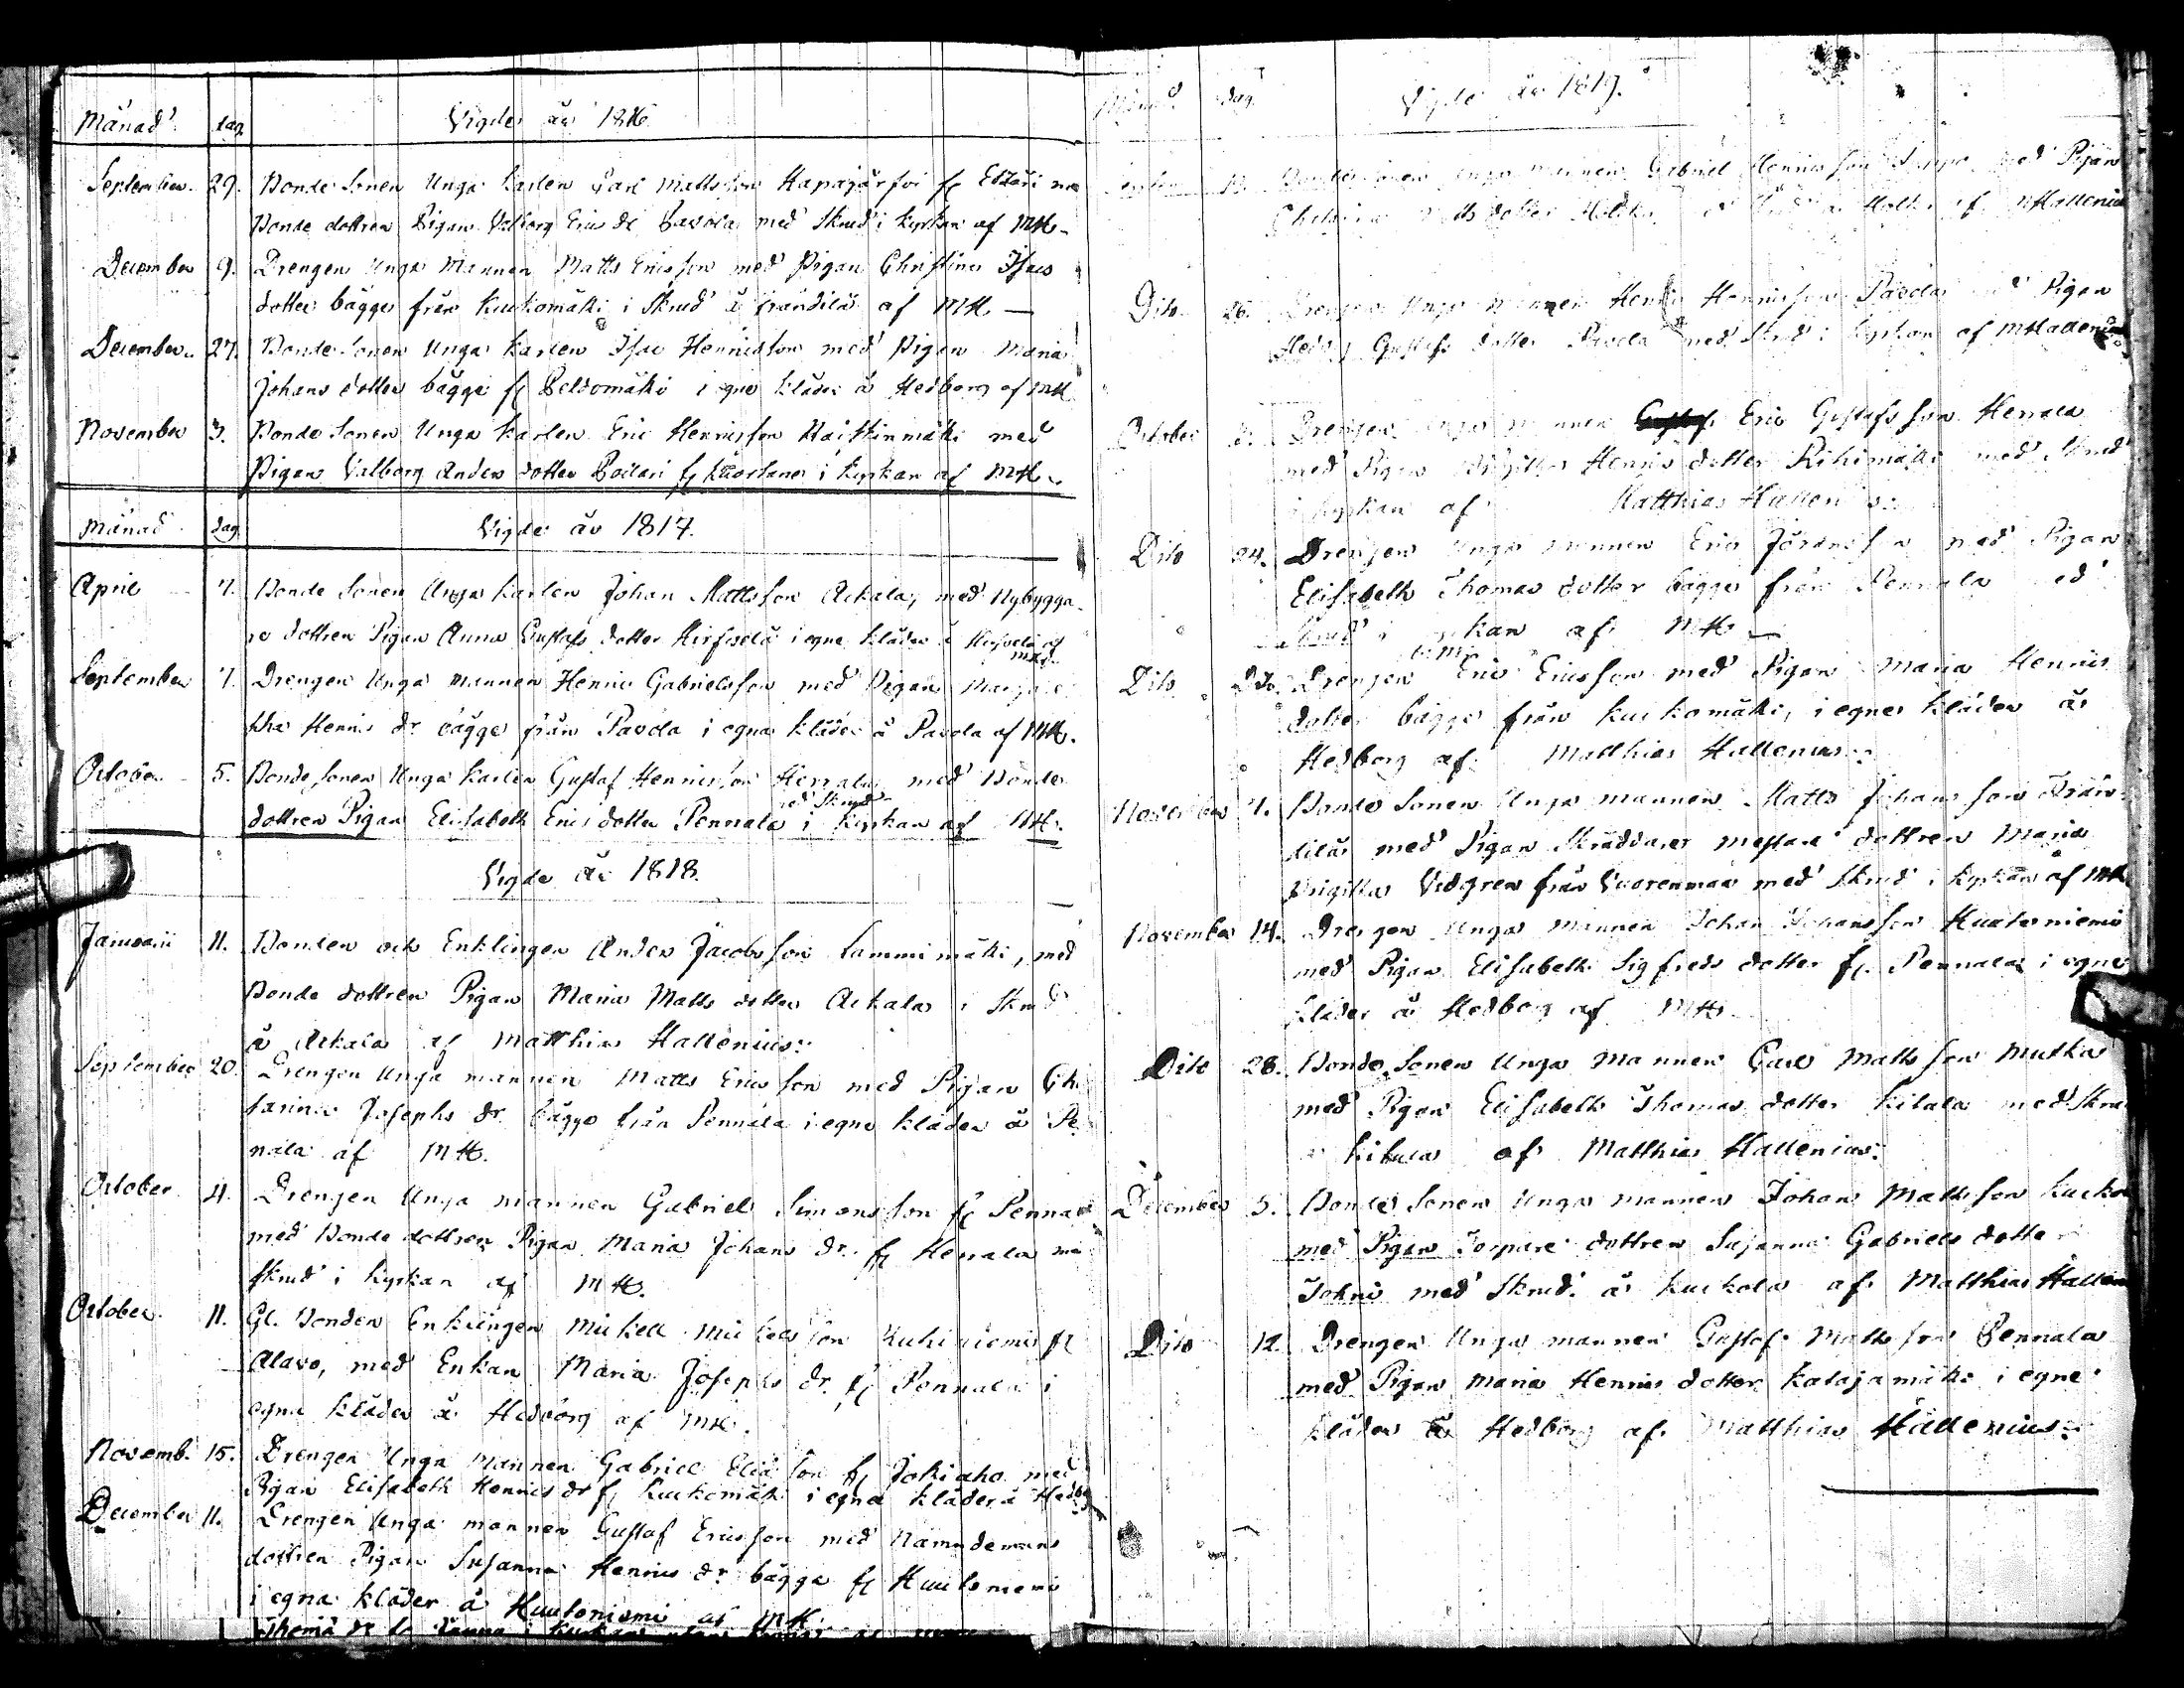 Månad dag Vigde år 1816
September 29. Bonde Sonen Unga Karlen Carl Mattsson Hapajärfvi fr Etzäri
Bonde dottren Pigan Valborg Erics dr Pavola med Skrud i Kyrkan af MH
December 9. Drengen Unga Mannen Matts Ericsson med Pigan Christina Isacs
dotter bägge från Kuckomäki i Skrud å Frändilä af MH
December 27. Bonde Sonen Unga Karlen Isac Henricsson med Pigan Maria
Johans dotter bägge fr Peldomäki i egne kläder å Hedborg af MH
November 3. Bonde Sonen Unga Karlen Eric Henricsson Raiskinmäki med
Pigan Valborg Anders dotter fr i Kyrkan af MH
Månad dag Vigde år 1817.
April 7. Bonde Sonen Unga Karlen Johan Mattsson Ackala, med Nybygga
re dottren Pigan Anna Gustafs dotter Hirfvelä i egne kläder å Hirfvelä af
MH
September 7. Drengen Unga Mannen Henric Gabrielsson med Pigan Marga
tha Henrics dr bägge från Pavola i egna kläder å Pavola af MH.
October 5. Bonde Sonen Unga Karlen Gustaf Henricsson Herrala med Bonde
med Skrud
dottren Pigan Elisabeth Erics dotter Pennala i Kyrkan af MH.
Vigde år 1818.
Januarii 11. Bonden och Enklingen Anders Jacobsson Lammimäki, med
Bonde dottren Pigan Maria Matts dotter Ackala i Skrud
å Ackala af Matthias Hallenius
September 20. Drengen Unga mannen Matts Ericsson med Pigan Cha
tarina Josephs dr. bägge från Pennala i egne kläder å Pe
nala af MH.
October 4. Drengen Unga mannen Gabriel Simonsson fr Penna
med Bonde dottren Pigan Maria Johans dr. fr Herrala me
skrud i Kyrkan af MH.
October 11. Gl. Bonden Enklingen Mickell Mickelsson Kuhiniemi fr
Alavo, med Enkan Maria Josephs dr. fr Pennala i
egna kläder å Hedborg af MH.
Novemb. 15. Drengen Unga Mannen Gabriel Eliasson fr Jokiaho med
Pigan Elisabeth Henrics dr fr Kuckomäki i egna kläder å Hedbg
December 11. Drengen Unga mannen Gustaf Ericsson med Nämndemans
dottren Pigan Susanna Henrics dr bägge fr Huutoniemi
i egna kläder å Huutoniemi af MH
Månad dag. Vigde år 1819.
Unga mannen Gabriel Henricsson med Pigan
Matts dotter af MHallenius
Dito 26. Drengen Unga Mannen Henric Henricsson Pavola med Pigan
Hedvig Gustafs dotter Pavola med Skrud i Kyrkan af MHallenius
October 3. Drengen Unga mannen Eric Gustafsson Herrala
med Pigan Brigitta Henrics dotter Rihimäki med Skrud
i Kyrkan af Matthias Hallenius
Dito 24. Drengen Unga mannen Eric Göransson med Pigan
Elisabeth Thomas dotter bägge från Pennala med
Skrud i Kyrkan af MH
u.m.
Dito Dito. Drengen Eric Ericsson med Pigan Maria Henrics
dotter bägge från Kuckomäki, i egne kläder å
Hedborg af Matthias Hallenius
November 7. Bonde Sonen Unga mannen Matts Johansson Frän
dilä med Pigan Skräddare mestare dottren Maria
Brigitta Vidgren från Vuorenmaa med Skrud i Kyrkan af MH
November 14. Drengen Unga Mannen Johan Johansson Huutoniemi
med Pigan Elisabeth Sigfreds dotter fr. Pennala i egne
kläder å Hedborg af MH
Dito 28. Bonde Sonen Unga Mannen Carl Mattsson Mutka
med Pigan Elisabeth Thomas dotter Kitula med Skru
å Kitula af Matthias Hallenius
December 5. Bonde Sonen Unga mannen Johan Mattsson Kucko
med Pigan Torpare dottren Susanna Gabriels dotter
Tohni med Skrud å Kuckola af Matthias Halleni
Dito 12. Drengen Unga mannen Gustaf Mattsson Pennala
med Pigan Maria Henrics dotter Katajamäki i egne
kläder å Hedborg af Matthias Hallenius